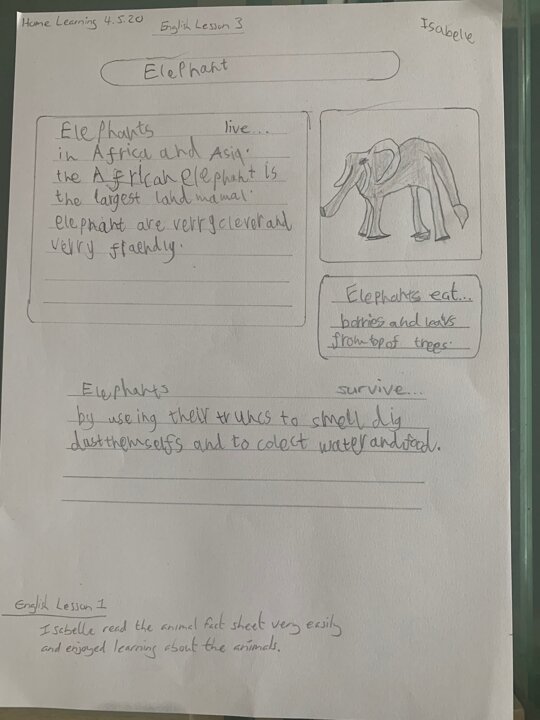 Home Learning 4.5.20
English Lesson 3
Isabelle
Elephant
Elephants live...
in Africa and Asia.
the African elephant is
the largest land mamal.
elephant are verry clever and
verry friendly.
Elephants eat...
borries and leaivs
from top of trees.
Elephants survive...
by useing their truncs to smell dig
dust themselfs and to colect water and food.
English Lesson 1
Isabelle read the animal fact sheet very easily
and enjoyed learning about the animals.